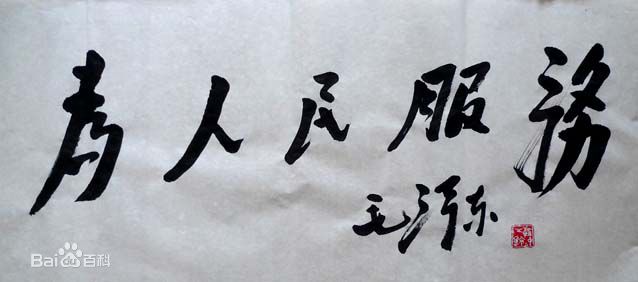 為人民服務
毛澤东
Bai百科